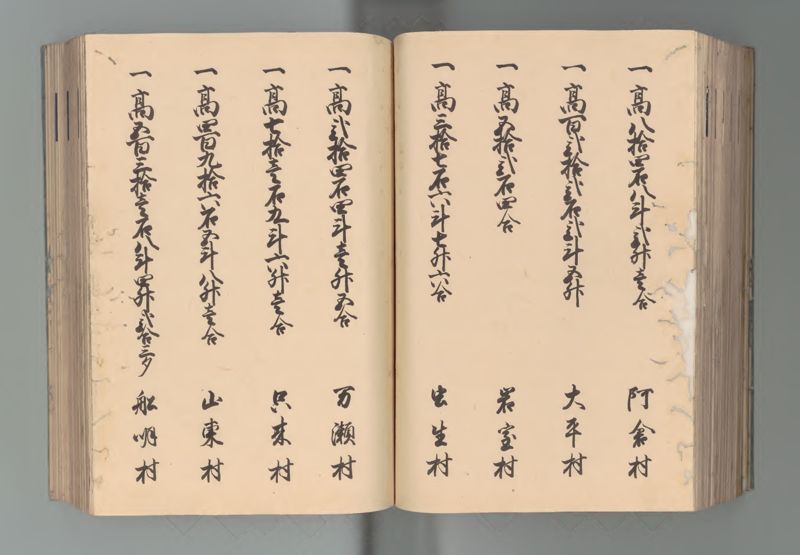 一高八拾四石八斗弐升壱合 阿倉村
一高百弐拾弐石弐斗五升 大平村
一高五拾弐石四合 岩室村
一高三拾七石六斗七升六合 虫生村
一高弐拾四石四斗壱升五合 万瀬村
一高七拾壱石九斗六升壱合 只来村
一高四百九拾六石五斗八升壱合 山東村
一高五百三拾壱石八斗四升弐合三夕 船明村